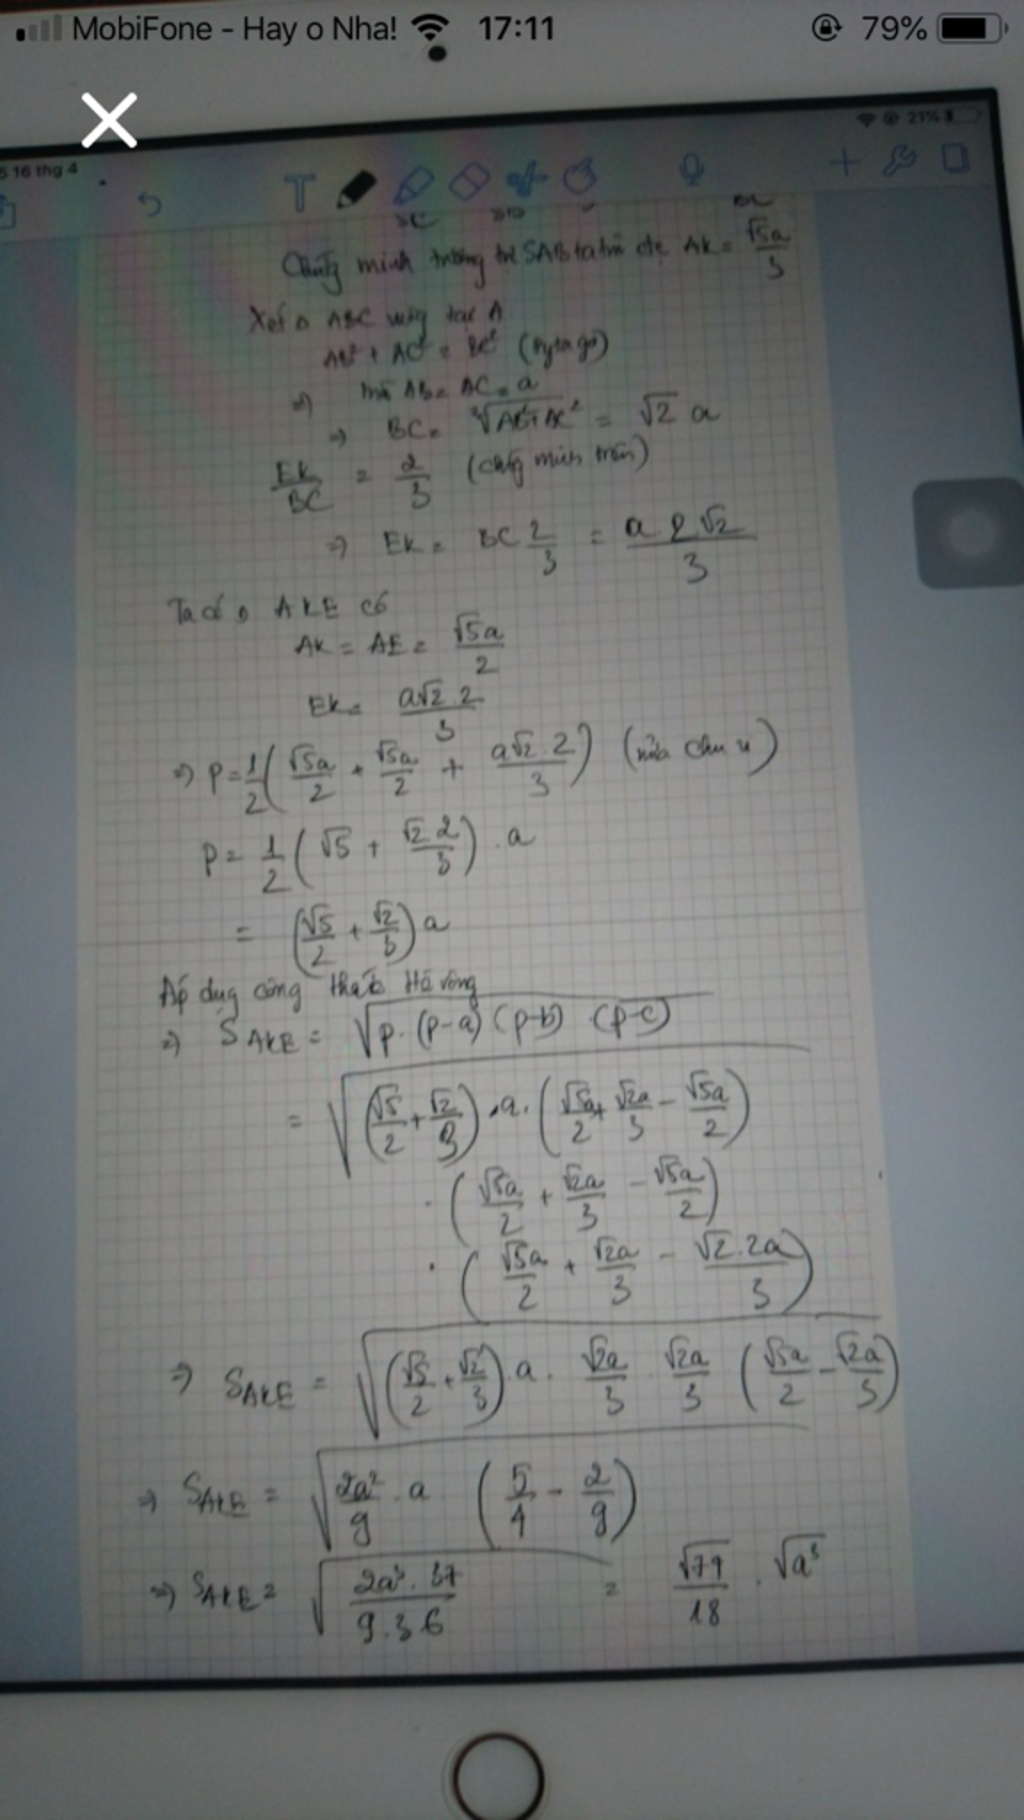 MobiFone - Hay o Nha! 17:11 79%
21%
16 thg 4
Chứng minh tương tự SAB ta tìm đc AK = √5a/3
Xét Δ ABC vuông tại A
AB² + AC² = BC² (Pytago)
mà AB = AC = a
⇒ BC = √AB²+AC² = √2 a
EK/BC = 2/3 (chứng minh trên)
⇒ EK = BC 2/3 = a 2√2/3
Ta có Δ AKE có
AK = AE = √5a/2
EK = a√2.2/3
⇒ P = 1/2(√5a/2 + √5a/2 + a√2.2/3) (nửa chu vi)
P = 1/2(√5 + √2 2/3).a
= (√5/2 + √2/3)a
Áp dụg công thức Hê rông
⇒ SAKE = √p.(p-a)(p-b)(p-c)
= √(√5/2 + √2/3).a.(√5a/2 + √2a/3 - √5a/2)
.(√5a/2 + √2a/3 - √5a/2)
.(√5a/2 + √2a/3 - √2.2a/3)
⇒ SAKE = √(√5/2 + √2/3).a.√2a/3.√2a/3(√5a/2 - √2a/3)
⇒ SAKE = √2a²/9.a(5/4 - 2/9)
⇒ SAKE = √2a³.37/9.36 = √74/18.√a³